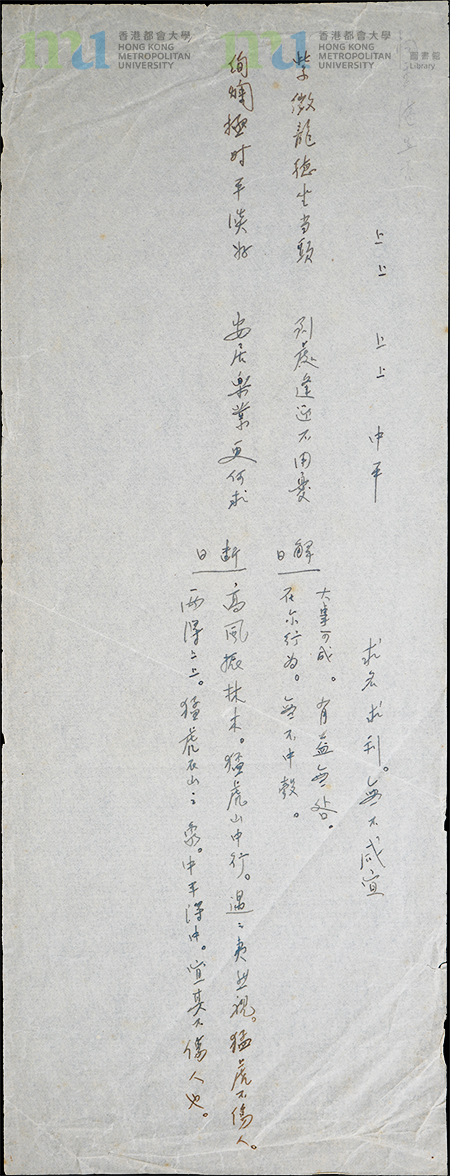 香港都會大學
HONG KONG
METROPOLITAN
UNIVERSITY
香港都會大學
HONG KONG
METROPOLITAN
UNIVERSITY
圖書館
Library
上上 上上 中平
求名求利。無不咸宜
紫微龍德坐當頭 到處逢迎不用憂
絢爛極時平淡好 安居樂業更何求
解曰
大事可成。有益無咎。
在尔行为。無不中彀。
断曰
高風振林木。猛虎山中行。遇之夷然視。猛虎不傷人。
两得上上。猛虎在山之象。中平得中。宜其不傷人也。